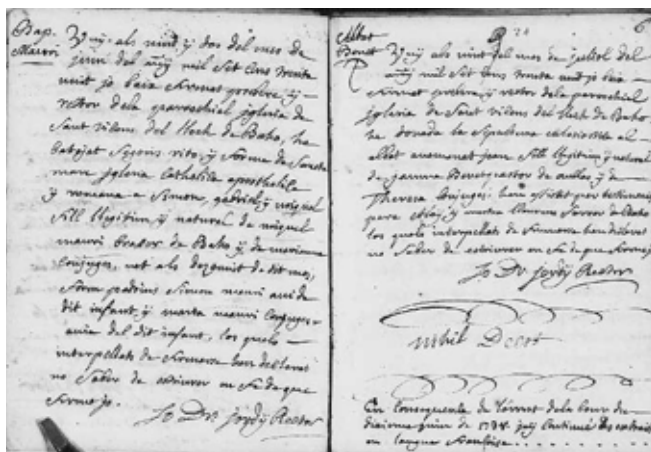 Bap.
Mauri
Vuy als vint y dos del mes de
juin del any mil sét cens trenta
vuit jo baix firmat prebere y
rector dela parrochial iglesia de
Sant vilens del lloch de Baho, ha
batejat segons rito, y forma de Sancta
mare iglesia catholica apostholica
y romana a Simon, gabriel, y miquel
fill llegitim, y natural de miquel
mauri de Baho y de
conjuges, nat als de dit mes,
foren padrins Simon mauri avi de
dit infant, y marta mauri conjuges
avia del dit infant, los quals
interpellats de firmarse han declarat
no saber de escriurer en fe de que
firmat jo.
Jo Dr. Rector
6
Albat
Bonet
Vuy als vint del mes de juliol del
any mil sét cens trenta vuit jo baix
firmat prebere, y rector dela parrochial
iglesia de Sant vilens del lloch de Baho
ha donada la sepultura ecclesiastica al
albat anomenat joan fill llegitim, y natural
de Bonet pastor de y de
Theresa conjuges. han assistit per testimonis
pere y de Baho
los quals interpellats de firmarse han declarat
no saber de escriurer en fe de que firmat jo
Jo Dr. Rector
nihil Deest
En consequence de l'arret dela Cour du
dixieme juin de 1738 jay Continué les extraits
en langue francoise